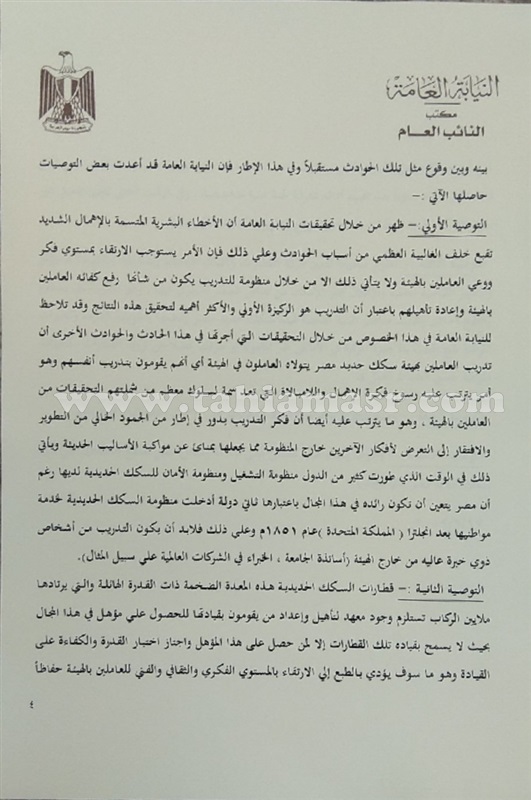 النيابة العامة
مكتب
النائب العام
بينه وبين وقوع مثل تلك الحوادث مستقبلاً وفي هذا الإطار فإن النيابة العامة قد أعدت بعض التوصيات
حاصلها الآتي :-
التوصية الأولي :- ظهر من خلال تحقيقات النيابة العامة أن الأخطاء البشرية المتسمة بالإهمال الشديد
تقبع خلف الغالبية العظمي من أسباب الحوادث وعلي ذلك فإن الأمر يستوجب الارتقاء بمستوي فكر
ووعي العاملين بالهيئة ولا يتأتي ذلك الا من خلال منظومة للتدريب يكون من شأنها رفع كفائه العاملين
بالهيئة وإعادة تأهيلهم باعتبار أن التدريب هو الركيزة الأولي والأكثر أهميه لتحقيق هذه النتائج وقد تلاحظ
للنيابة العامة في هذا الخصوص من خلال التحقيقات التي أجرتها في هذا الحادث والحوادث الأخرى أن
تدريب العاملين بهيئة سكك حديد مصر يتولاه العاملون في الهيئة أي أنهم يقومون بتدريب أنفسهم وهو
أمر يترتب عليه رسوخ فكرة الإهمال واللامبالاة التي تعد سمة لسلوك معظم من شملتهم التحقيقات من
العاملين بالهيئة ، وهو ما يترتب عليه أيضا أن فكر التدريب يدور في إطار من الجمود الخالي من التطوير
والافتقار إلي التعرض لأفكار الآخرين خارج المنظومة مما يجعلها بمنائ عن مواكبة الأساليب الحديثة ويأتي
ذلك في الوقت الذي طورت كثير من الدول منظومة التشغيل ومنظومة الأمان للسكك الحديدية لديها رغم
أن مصر يتعين أن تكون رائده في هذا المجال باعتبارها ثاني دولة أدخلت منظومة السكك الحديدية لخدمة
مواطنيها بعد انجلترا ( المملكة المتحدة )عام ١٨٥١م وعلي ذلك فلابد أن يكون التدريب من أشخاص
ذوي خبرة عاليه من خارج الهيئة (أساتذة الجامعة ، الخبراء في الشركات العالمية علي سبيل المثال).
التوصية الثانية :- قطارات السكك الحديدية هذه المعدة الضخمة ذات القدرة الهائلة والتي يرتادها
ملايين الركاب تستلزم وجود معهد لتأهيل وإعداد من يقومون بقيادتها للحصول علي مؤهل في هذا المجال
بحيث لا يسمح بقياده تلك القطارات إلا لمن حصل علي هذا المؤهل واجتاز اختبار القدرة والكفاءة علي
القيادة وهو ما سوف يؤدي بالطبع إلي الارتقاء بالمستوي الفكري والثقافي والفني للعاملين بالهيئة حفاظاً
٤
www.tahiamasr.com